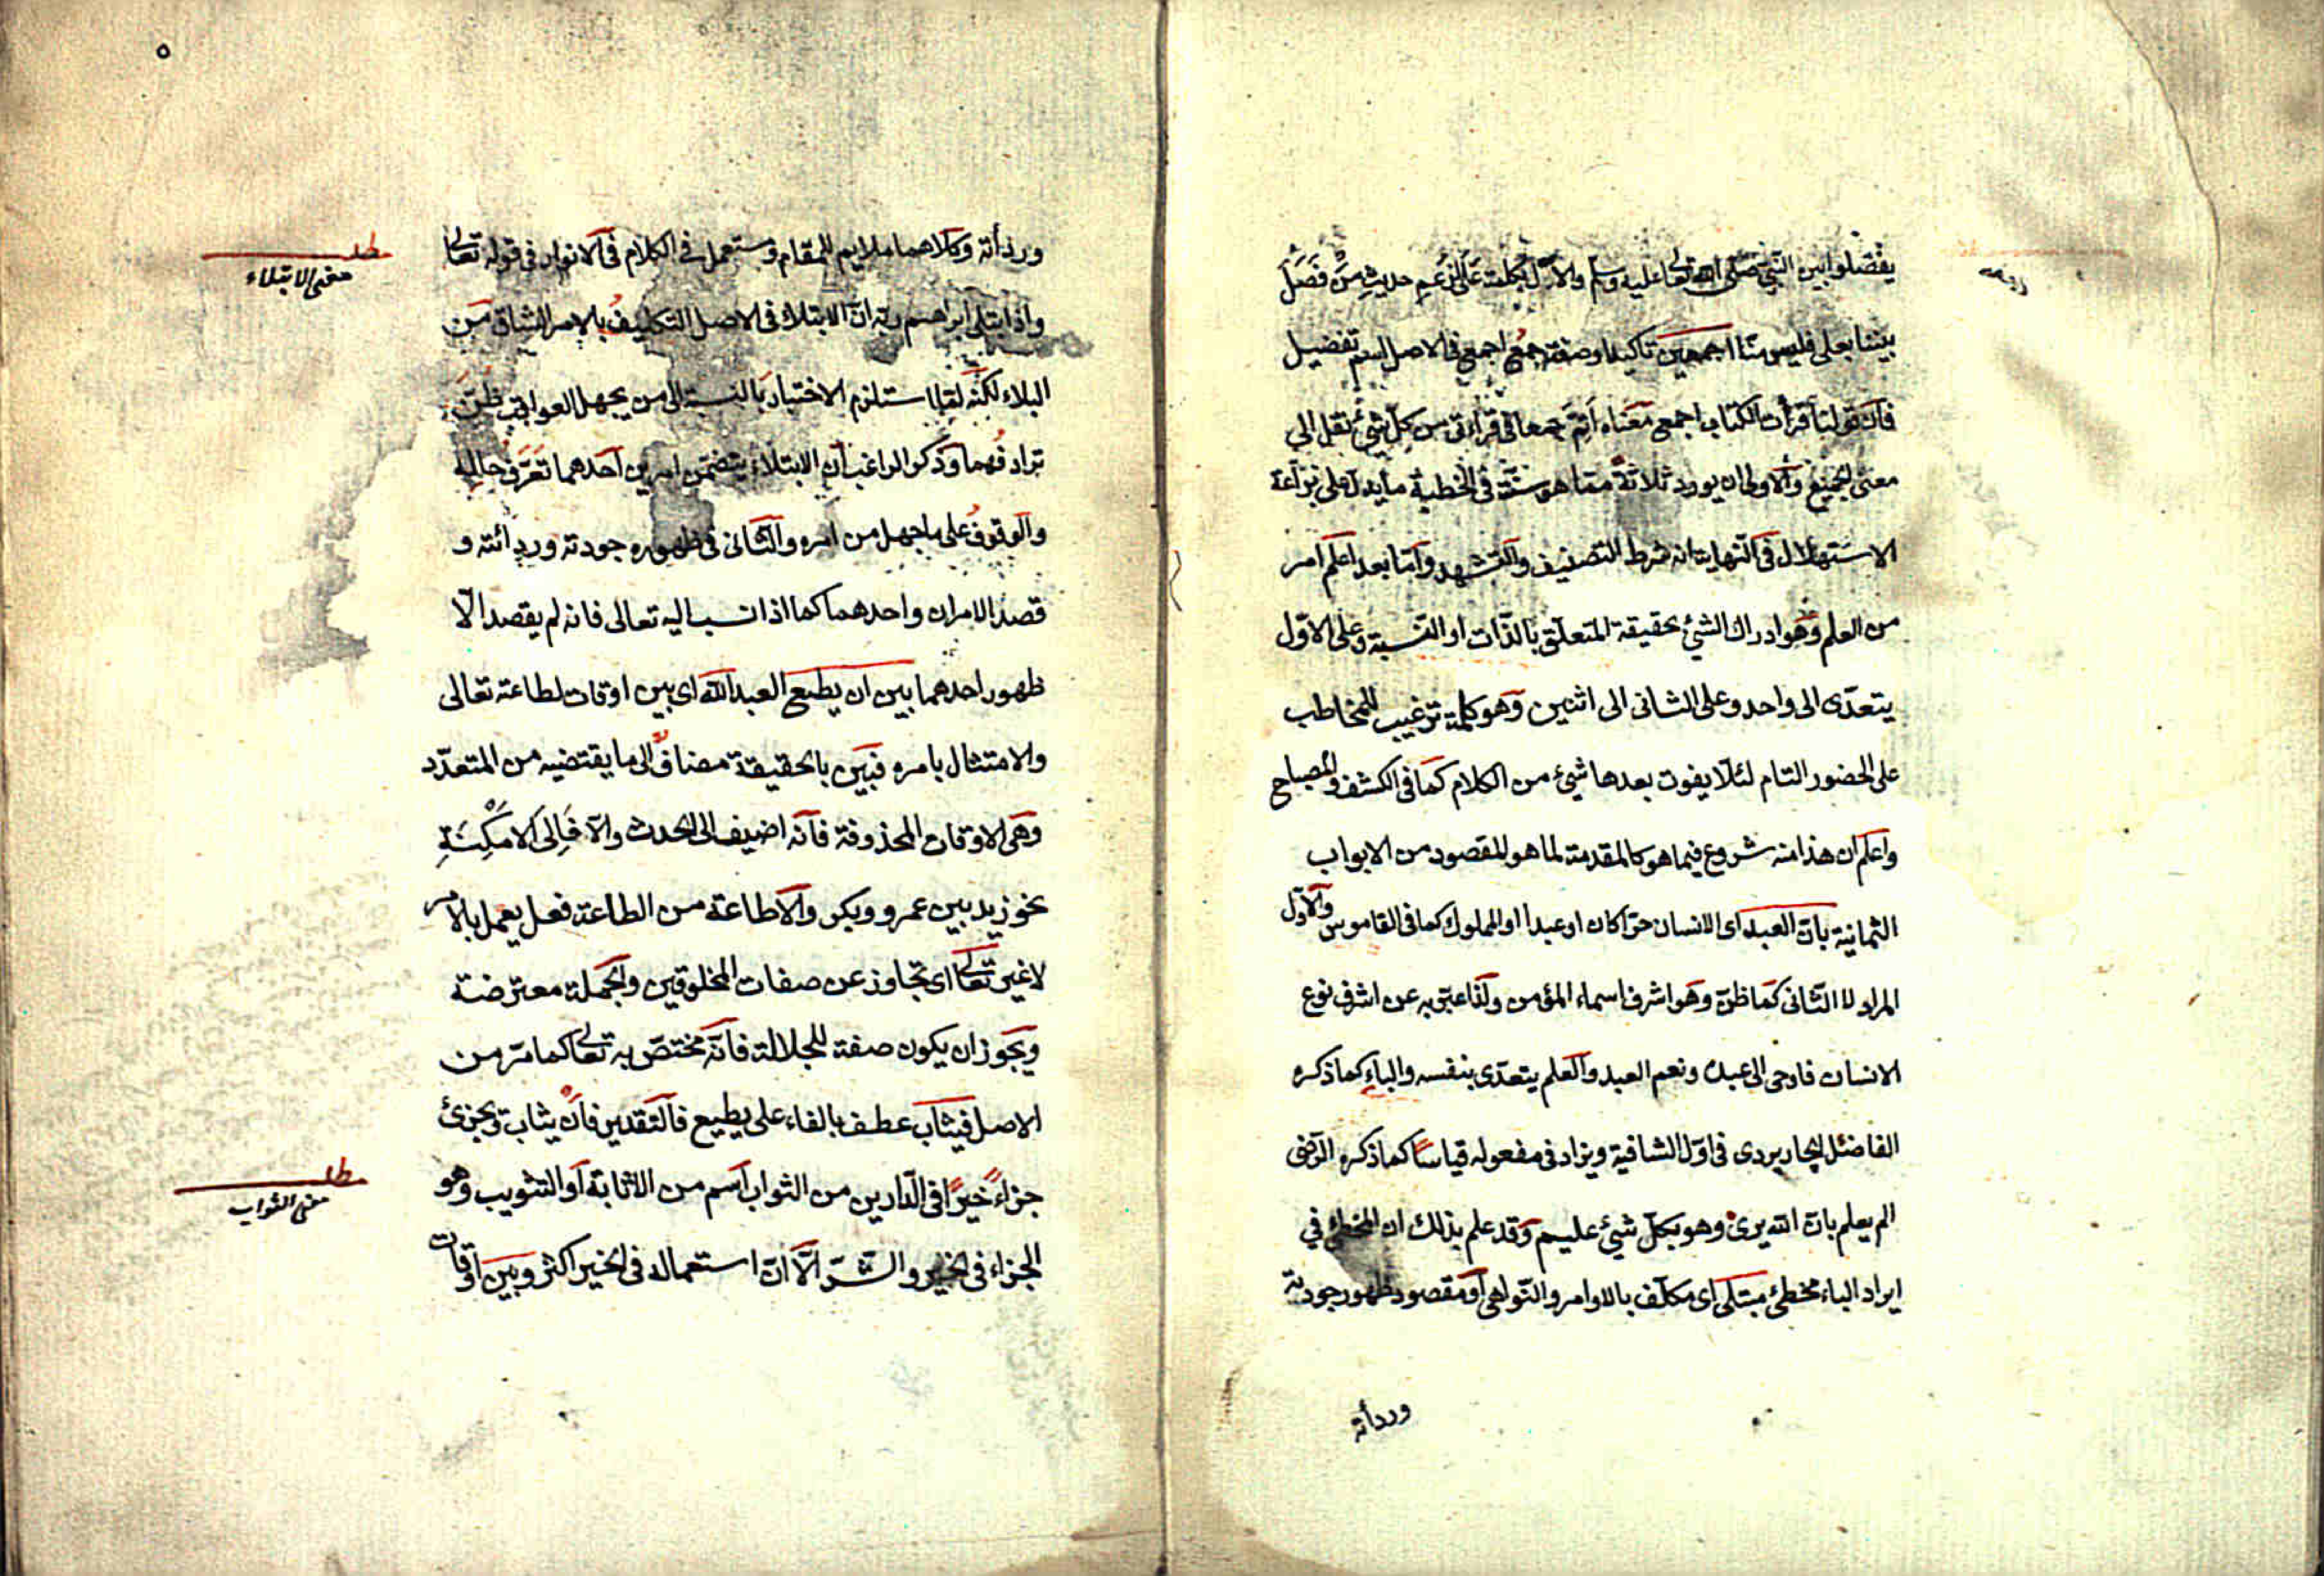 يفضلوا بين النبي صلى الله تعالى عليه وسلم والآل بكلمة على لزعم حديث من فصل
بيننا بعلى فليس منا اجمعين تأكيد او صفة جمع اجمع في الاصل اسم تفضيل
فان قولنا قرأت الكتاب اجمع معناه اتم جمعا في قراءتى من كل شئ نقل الى
معنى الجميع والاولى ان يورد ثلاثة مما هو سنة في الخطبة ما يدل على براعة
الاستهلال في النهاية انه شرط التصنيف والتشهد واما بعد اعلم امر
من العلم وهو ادراك الشئ بحقيقة المتعلق بالذات او النسبة وعلى الاول
يتعدى الى واحد وعلى الثانى الى اثنين وهو كلمة ترغيب للمخاطب
على الحضور التام لئلا يفوت بعدها شئ من الكلام كما في الكشف والمصباح
واعلم ان هذا منه شروع فيما هو كالمقدمة لما هو المقصود من الابواب
الثمانية بان العبد اى الانسان حرا كان او عبدا او المملوك كما في القاموس والاول
المراد لا الثانى كما ظن وهو اشرف اسماء المؤمن ولذا عبر به عن اشرف نوع
الانسان فاوحى الى عبده ونعم العبد والعلم يتعدى بنفسه والباء كما ذكره
الفاضل الجاربردى في اول الشافية ويزاد في مفعوله قياسا كما ذكره الرضى
الم يعلم بان الله يرى وهو بكل شئ عليم وقد علم بذلك ان المخطئ في
ايراد الباء مخطئ مبتلى اى مكلف بالاوامر والنواهى او مقصود ظهور جودته
وردأته
٥
وردأته وكلاهما ملايم للمقام ومستعمل في الكلام في الانوار في قوله تعالى
واذ ابتلى ابراهيم ربه ان الابتلاء في الاصل التكليف بالامر الشاق من
البلاء لكنه لما استلزم الاختبار بالنسبة الى من يجهل العواقب ظن
ترادفهما وذكر الراغب ان الابتلاء يتضمن امرين احدهما تعرف حاله
والوقوف على ما جهل من امره والثانى في ظهوره جودته وردائته و
قصد الامران واحدهما كما اذا نسب اليه تعالى فانه لم يقصد الا
ظهور احدهما بين ان يطيع العبد الله اى بين اوقات لطاعته تعالى
والامتثال بامره فبين بالحقيقة مضاف الى ما يقتضيه من المتعدد
وهى الاوقات المحذوفة فانه اضيف الى الحدث والا فالى الامكنة
نحو زيد بين عمرو وبكر والاطاعة من الطاعة فعل يعمل بالامر
لا غير تعالى اى تجاوز عن صفات المخلوقين والجملة معترضة
ويجوز ان يكون صفة للجلالة فانه مختص به تعالى كما مر من
الاصل فيثاب عطف بالفاء على يطيع فالتقدير فان يثاب ويجزئ
جزاء خيرا في الدارين من الثواب اسم من الاثابة او التثويب وهو
الجزاء في الخير والشر الا ان استعماله في الخير اكثر وبين اوقات
مطلب
معنى الابتلاء
مطلب
معنى الثواب